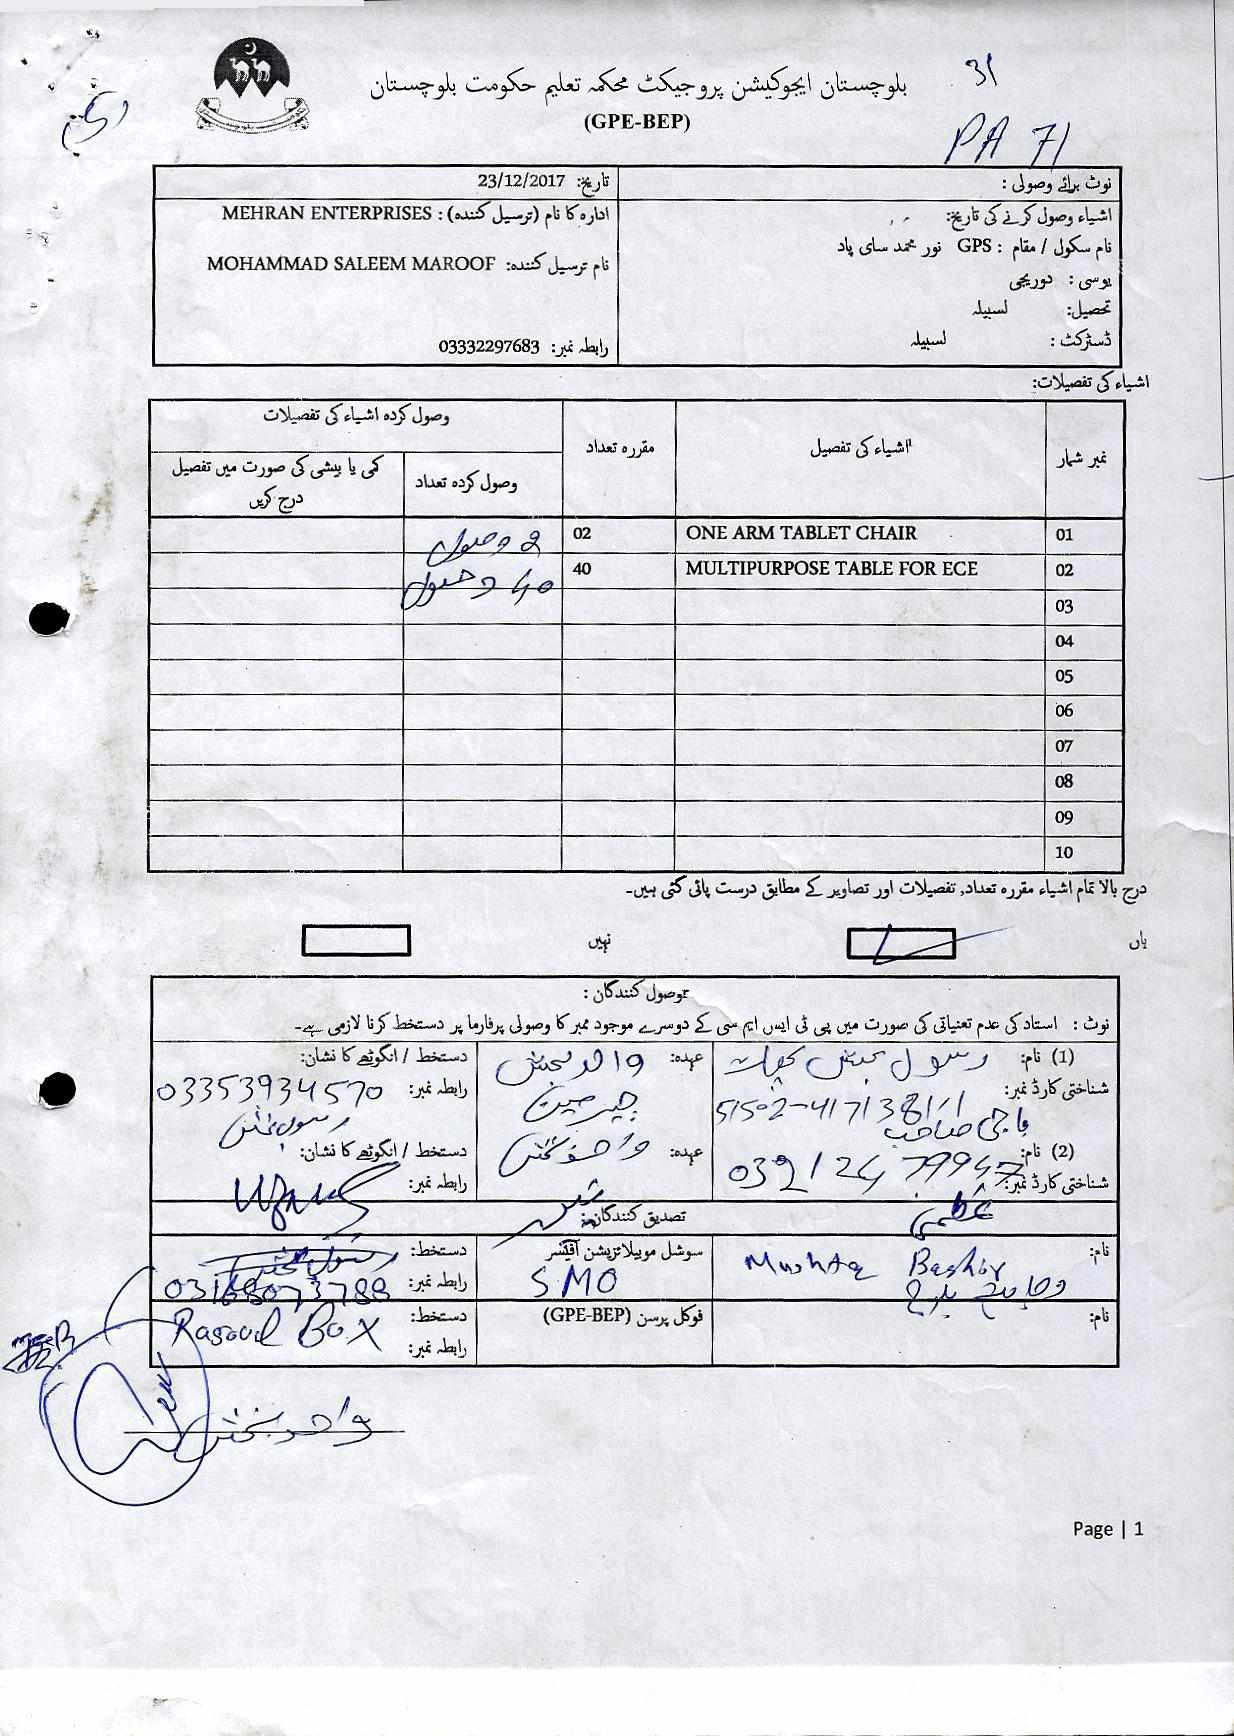 بلوچستان ایجوکیشن پروجیکٹ محکمہ تعلیم حکومت بلوچستان
(GPE-BEP)
31
PA 71
نوٹ برائے وصولی :
تاریخ: 23/12/2017
اشیاء وصول کرنے کی تاریخ:
نام سکول / مقام : GPS نور محمد سای پاد
یوسی : دوریجی
تحصیل: لسبیلہ
ڈسٹرکٹ : لسبیلہ
ادارہ کا نام (ترسیل کنندہ) : MEHRAN ENTERPRISES
نام ترسیل کنندہ: MOHAMMAD SALEEM MAROOF
رابطہ نمبر: 03332297683
اشیاء کی تفصیلات:
نمبر شمار اشیاء کی تفصیل مقررہ تعداد وصول کردہ اشیاء کی تفصیلات
وصول کردہ تعداد کمی یا بیشی کی صورت میں تفصیل درج کریں
01 ONE ARM TABLET CHAIR 02 2 وصول
02 MULTIPURPOSE TABLE FOR ECE 40 40 وصول
03
04
05
06
07
08
09
10
درج بالا تمام اشیاء مقررہ تعداد, تفصیلات اور تصاویر کے مطابق درست پائی گئی ہیں۔
ہاں نہیں
وصول کنندگان :
نوٹ : استاد کی عدم تعیناتی کی صورت میں پی ٹی ایس ایم سی کے دوسرے موجود ممبر کا وصولی پرفارما پر دستخط کرنا لازمی ہے۔
(1) نام: رسول بخش
عہدہ: واحد بخش
دستخط / انگوٹھے کا نشان:
شناختی کارڈ نمبر:
چیرمین
رابطہ نمبر: 03353934570
رسول بخش
(2) نام: حاجی صاحب
عہدہ: واحد بخش
دستخط / انگوٹھے کا نشان:
شناختی کارڈ نمبر:
رابطہ نمبر:
تصدیق کنندگان:
نام: Mushtaq Bashir
سوشل موبیلائزیشن آفیسر
SMO
دستخط:
رابطہ نمبر:
نام:
فوکل پرسن (GPE-BEP)
دستخط: Rasool Box
رابطہ نمبر:
واحد بخش
Page | 1